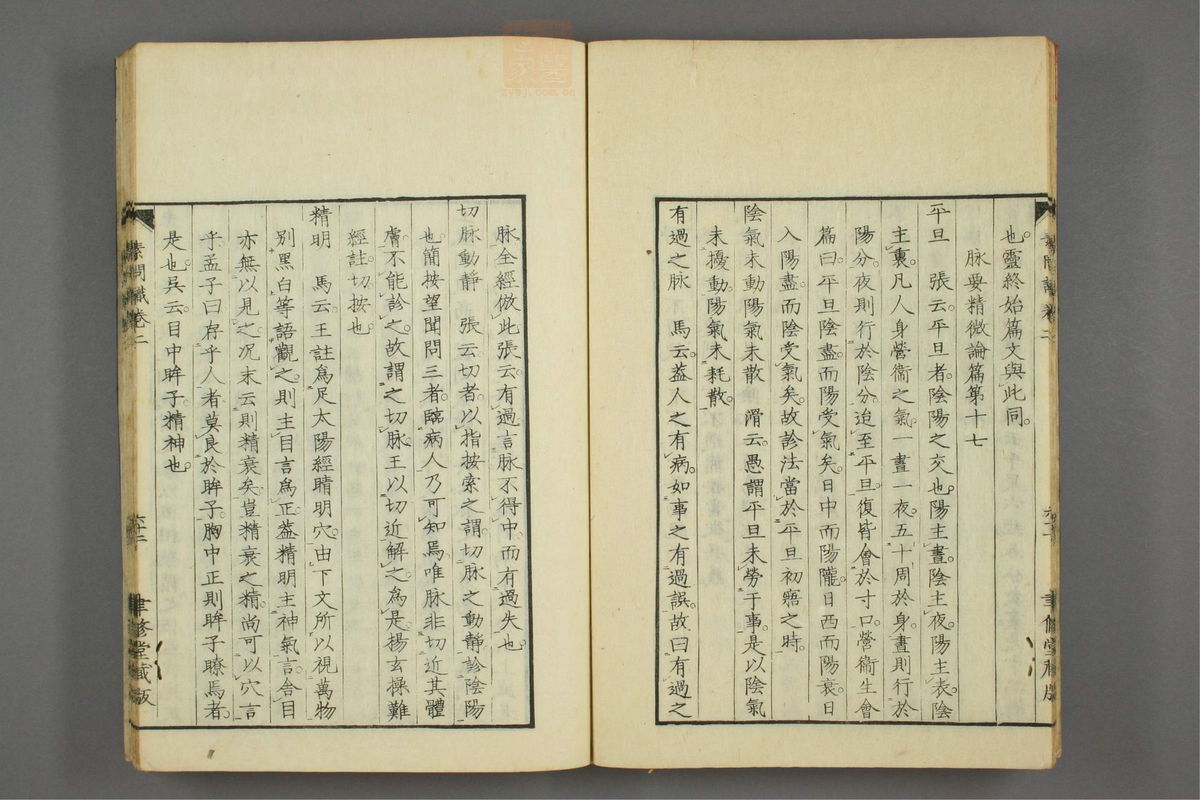 也。靈終始篇文與此同。
脉要精微論篇第十七
平旦　張云。平旦者陰陽之交也。陽主晝陰主夜。陽主表陰
主裏。凡人身營衞之氣。一晝一夜。五十周於身。晝則行於
陽分。夜則行於陰分。迨至平旦。復皆會於寸口。營衞生會
篇曰。平旦陰盡。而陽受氣矣。日中而陽隴。日西而陽衰。日
入陽盡。而陰受氣矣。故診法當於平旦初寤之時。
陰氣未動陽氣未散　滑云。愚謂平旦未勞于事。是以陰氣
未擾動。陽氣未耗散。
有過之脉　馬云。葢人之有病。如事之有過誤。故曰有過之
脉。全經倣此。張云。有過言脉不得中。而有過失也
切脉動靜　張云。切者。以指按索之謂。切脉之動靜。診陰陽
也。簡按望聞問三者。臨病人乃可知焉。唯脉非切近其體
膚。不能診之。故謂之切脉。王以切近解之爲是。揚玄操難
經註。切。按也。
精明　馬云。王註爲足太陽經睛明穴。由下文所以視萬物
別黑白等語觀之。則主目言爲正。葢精明主神氣言。舍目
亦無以見之。况末云則精衰矣。豈精衰之精。尚可以穴言
乎。孟子曰。存乎人者。莫良於眸子。胸中正則眸子瞭焉者。
是也。吳云。目中眸子精神也。
素問識卷二
六十二
聿修堂藏版